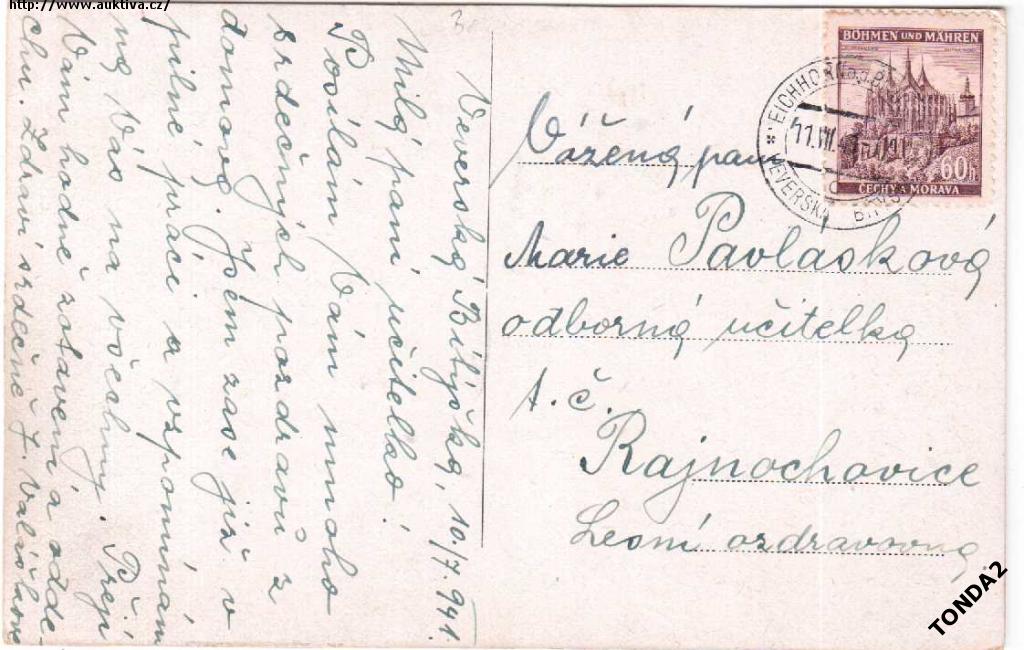 http://www.auktiva.cz/
Veverská Bitýška, 10./7. 941.
Milá paní učitelko!
Posílám Vám mnoho
srdečných pozdravů z
domova. Jsem zase již v
pilné práci a vzpomínám
na Vás na všechny. Přeji
Vám hodně zotavení a
chu. Zdraví srdečně
BÖHMEN UND MÄHREN
60h
ČECHY A MORAVA
EICHHORN
11.VII.41
VEVERSKÁ BÍTÝŠKA
Vážená paní
Marie Pavlasková
odborná učitelka
t. č.
Rajnochovice
Lesní ozdravovna.
TONDA2